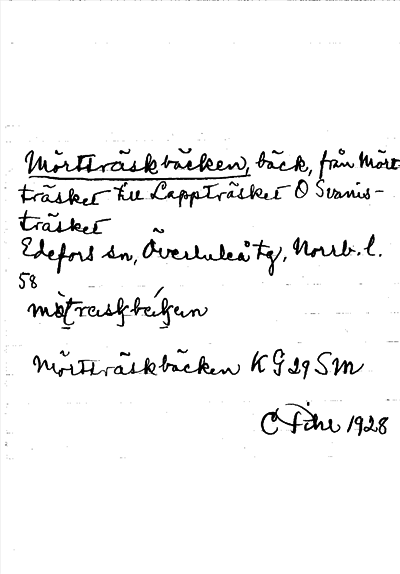 Mörtträskbäcken, bäck, från Mört-
träsket till Lappträsket O Svanis-
träsket
Edefors sn, Överluleå tg, Norrb. l.
58
Mörtträskbäcken K G 29 SM
1928